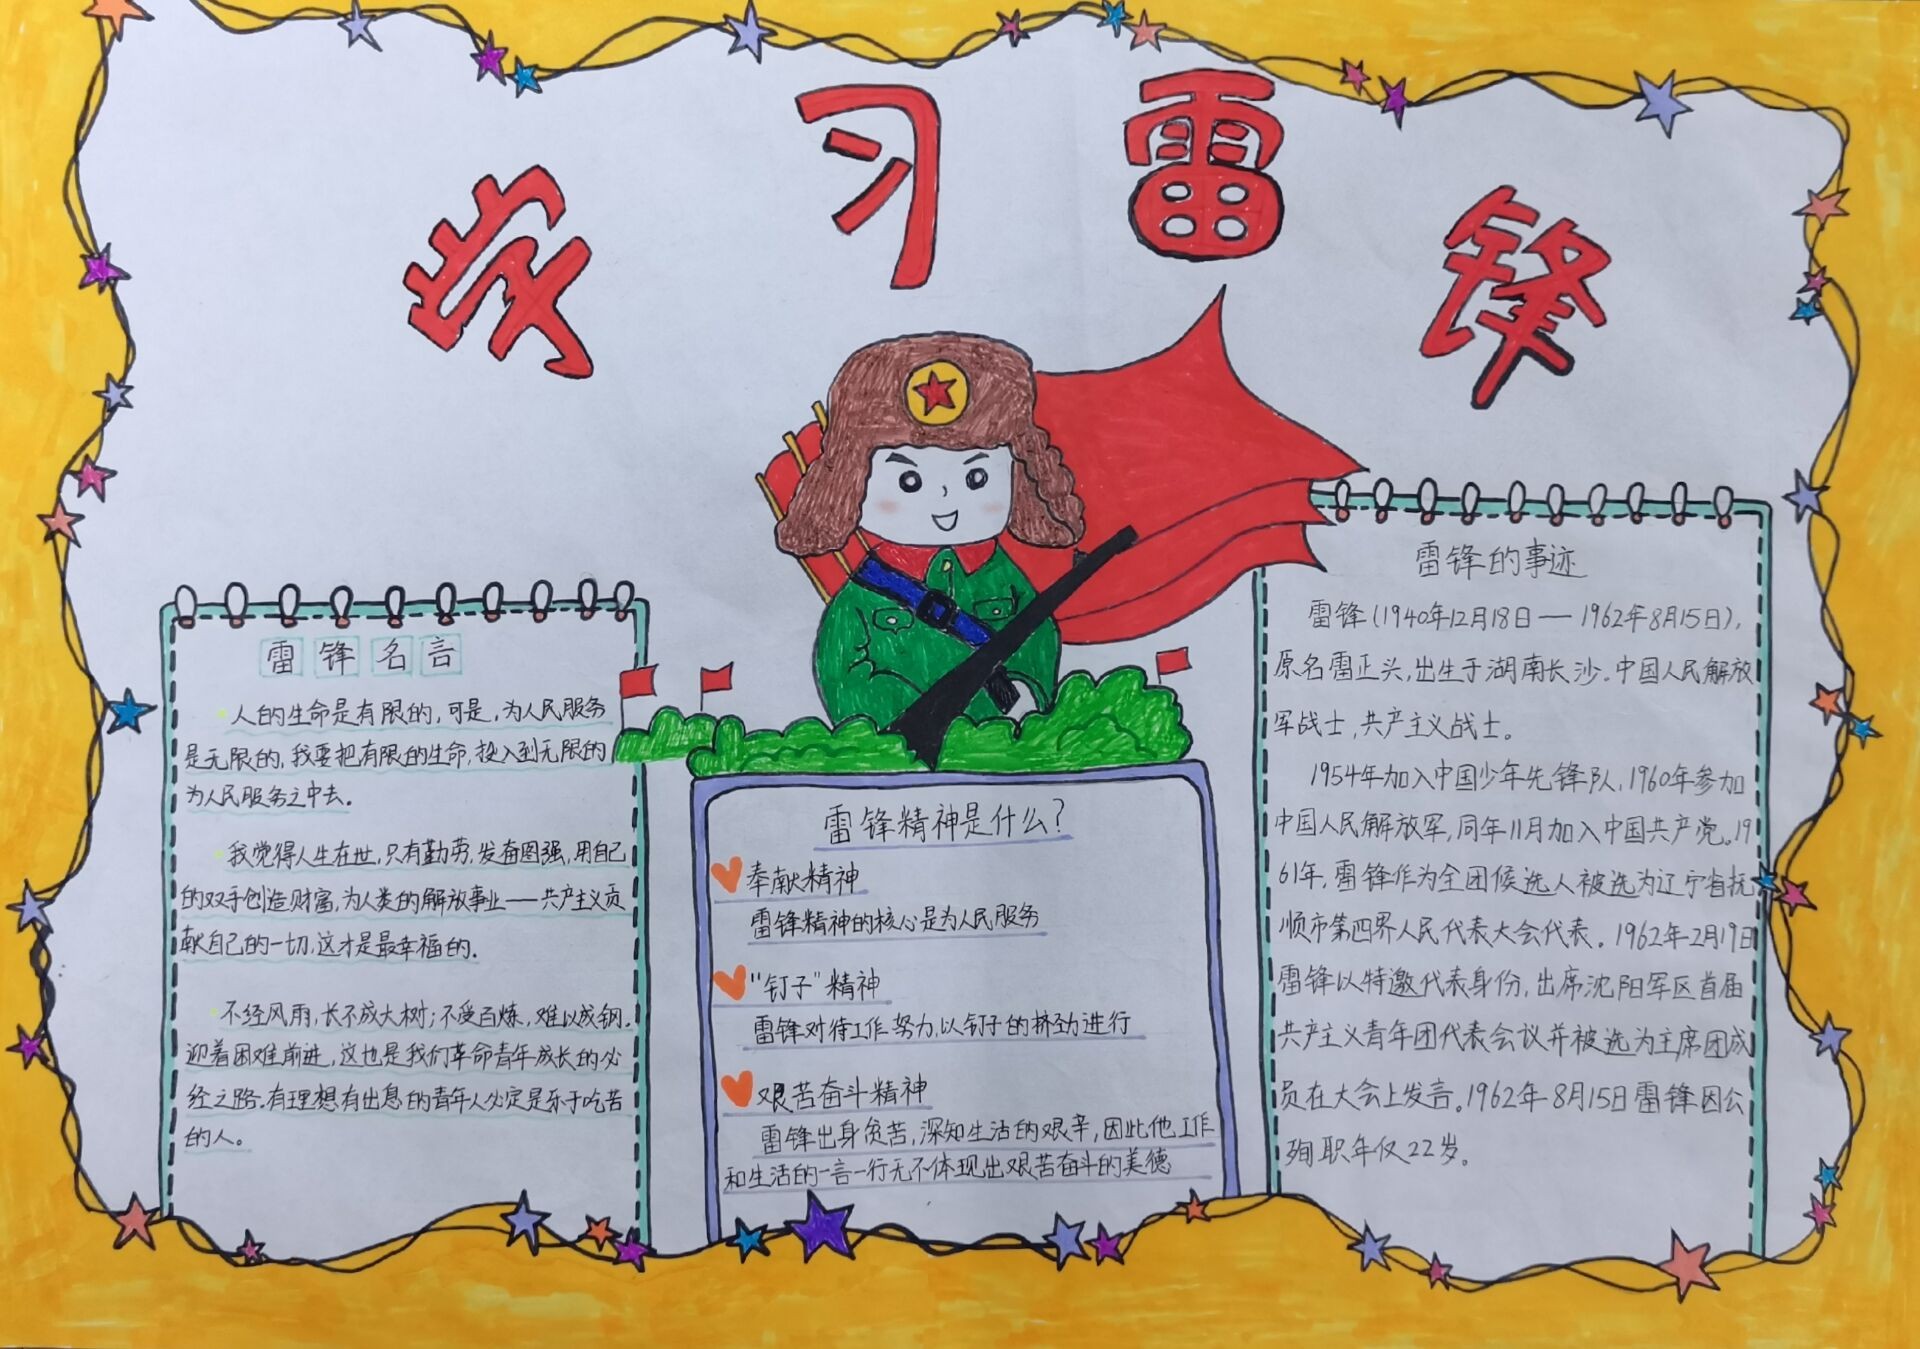 学习雷锋
雷锋名言
人的生命是有限的,可是,为人民服务
是无限的,我要把有限的生命,投入到无限的
为人民服务之中去。
我觉得人生在世,只有勤劳,发奋图强,用自己
的双手创造财富,为人类的解放事业——共产主义贡
献自己的一切,这才是最幸福的。
不经风雨,长不成大树;不受百炼,难以成钢.
迎着困难前进,这也是我们革命青年成长的必
经之路.有理想有出息的青年人必定是乐于吃苦
的人。
雷锋精神是什么?
奉献精神
雷锋精神的核心是为人民服务
"钉子"精神
雷锋对待工作,努力,以钉子的挤劲进行
艰苦奋斗精神
雷锋出身贫苦,深知生活的艰辛,因此他工作
和生活的一言一行无不体现出艰苦奋斗的美德
雷锋的事迹
雷锋(1940年12月18日——1962年8月15日),
原名雷正兴,出生于湖南长沙.中国人民解放
军战士,共产主义战士。
1954年加入中国少年先锋队,1960年参加
中国人民解放军,同年11月加入中国共产党。19
61年,雷锋作为全团候选人被选为辽宁省抚
顺市第四界人民代表大会代表。1962年2月19日
雷锋以特邀代表身份,出席沈阳军区首届
共产主义青年团代表会议并被选为主席团成
员在大会上发言。1962年8月15日雷锋因公
殉职年仅22岁。